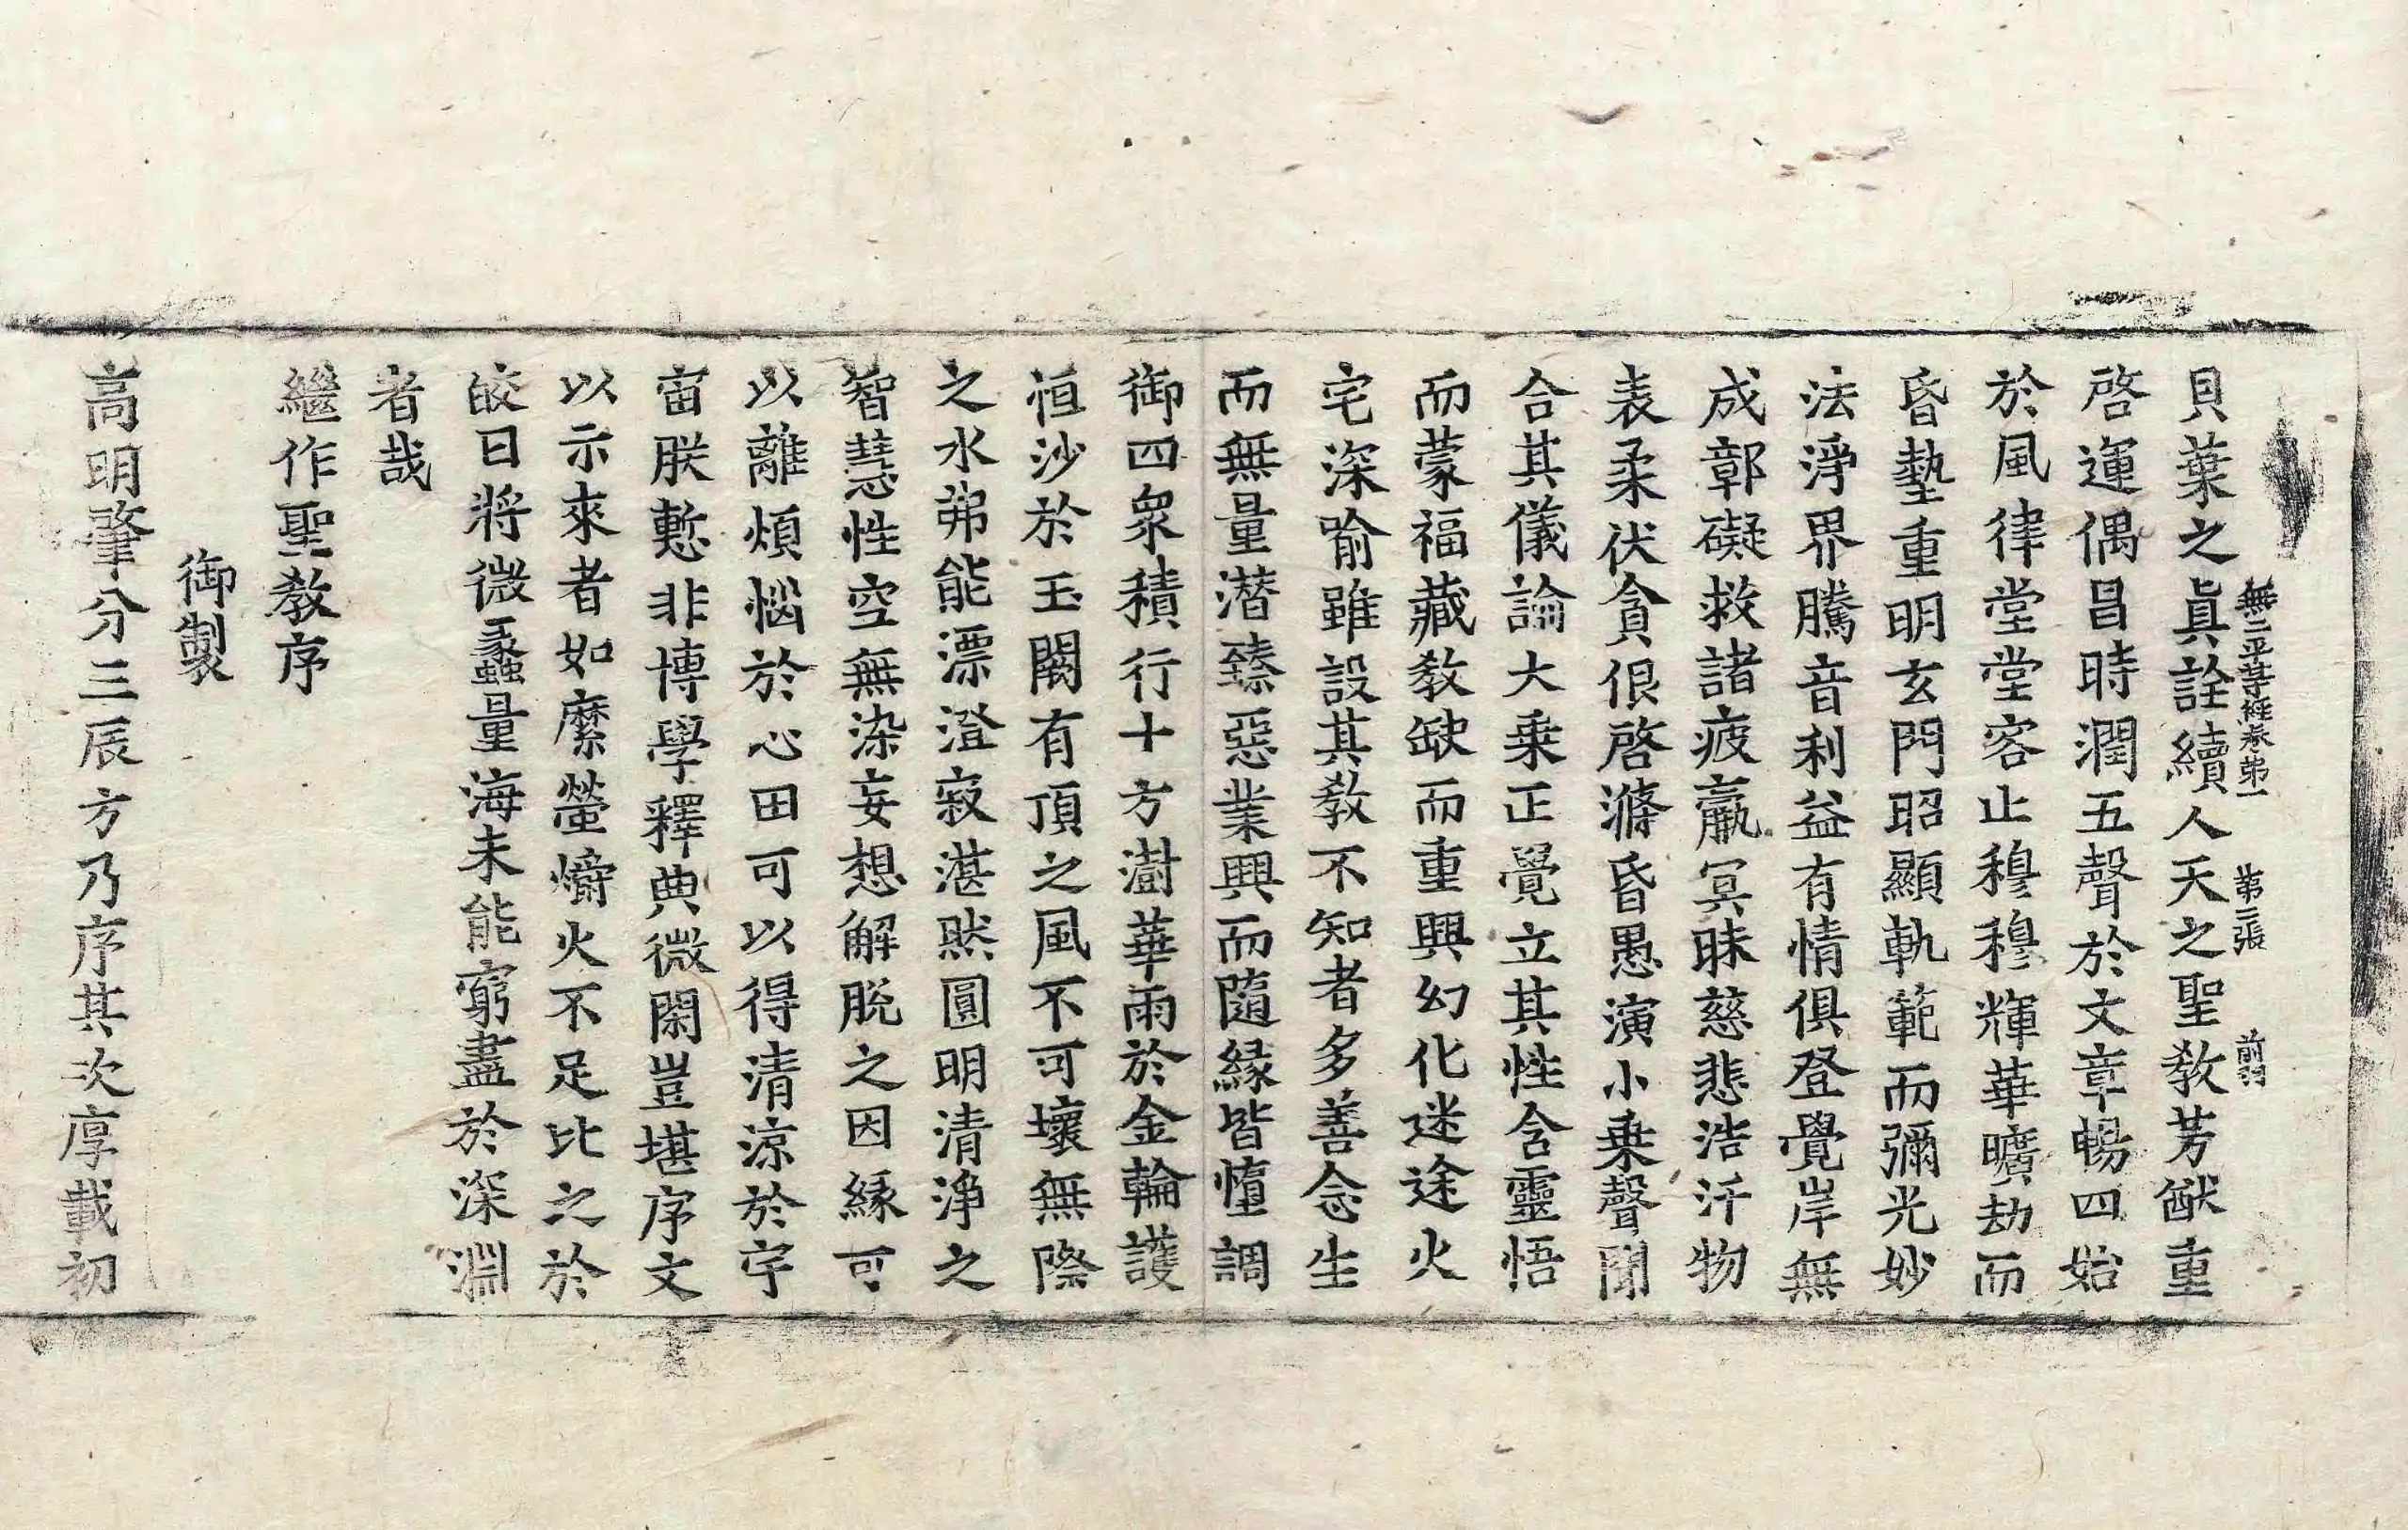 無二平等經卷第一 第二張 前羽
貝葉之眞詮續人天之聖教芳猷重
啓運偶昌時潤五聲於文章暢四始
於風律堂堂容止穆穆輝華曠劫而
昏墊重明玄門昭顯軌範而彌光妙
法淨界騰音利益有情俱登覺岸無
成鄣礙救諸疲羸冥昧慈悲浩汗物
表柔伏貪佷啓滌昏愚演小乗聲聞
合其儀論大乗正覺立其性含靈悟
而蒙福藏教缺而重興幻化迷途火
宅深喻雖設其教不知者多善念生
而無量潜臻惡業興而隨緣皆墮調
御四衆積行十方澍華雨於金輪護
恒沙於玉闕有頂之風不可壞無際
之水弗能漂澄寂湛然圓明清淨之
智慧性空無染妄想解脫之因緣可
以離煩惱於心田可以得清涼於宇
宙朕慙非博學釋典微閑豈堪序文
以示來者如縻螢爝火不足比之於
皎日將微蠡量海未能窮盡於深淵
者哉
繼作聖教序
御製
高明肇分三辰方乃序其次厚載初